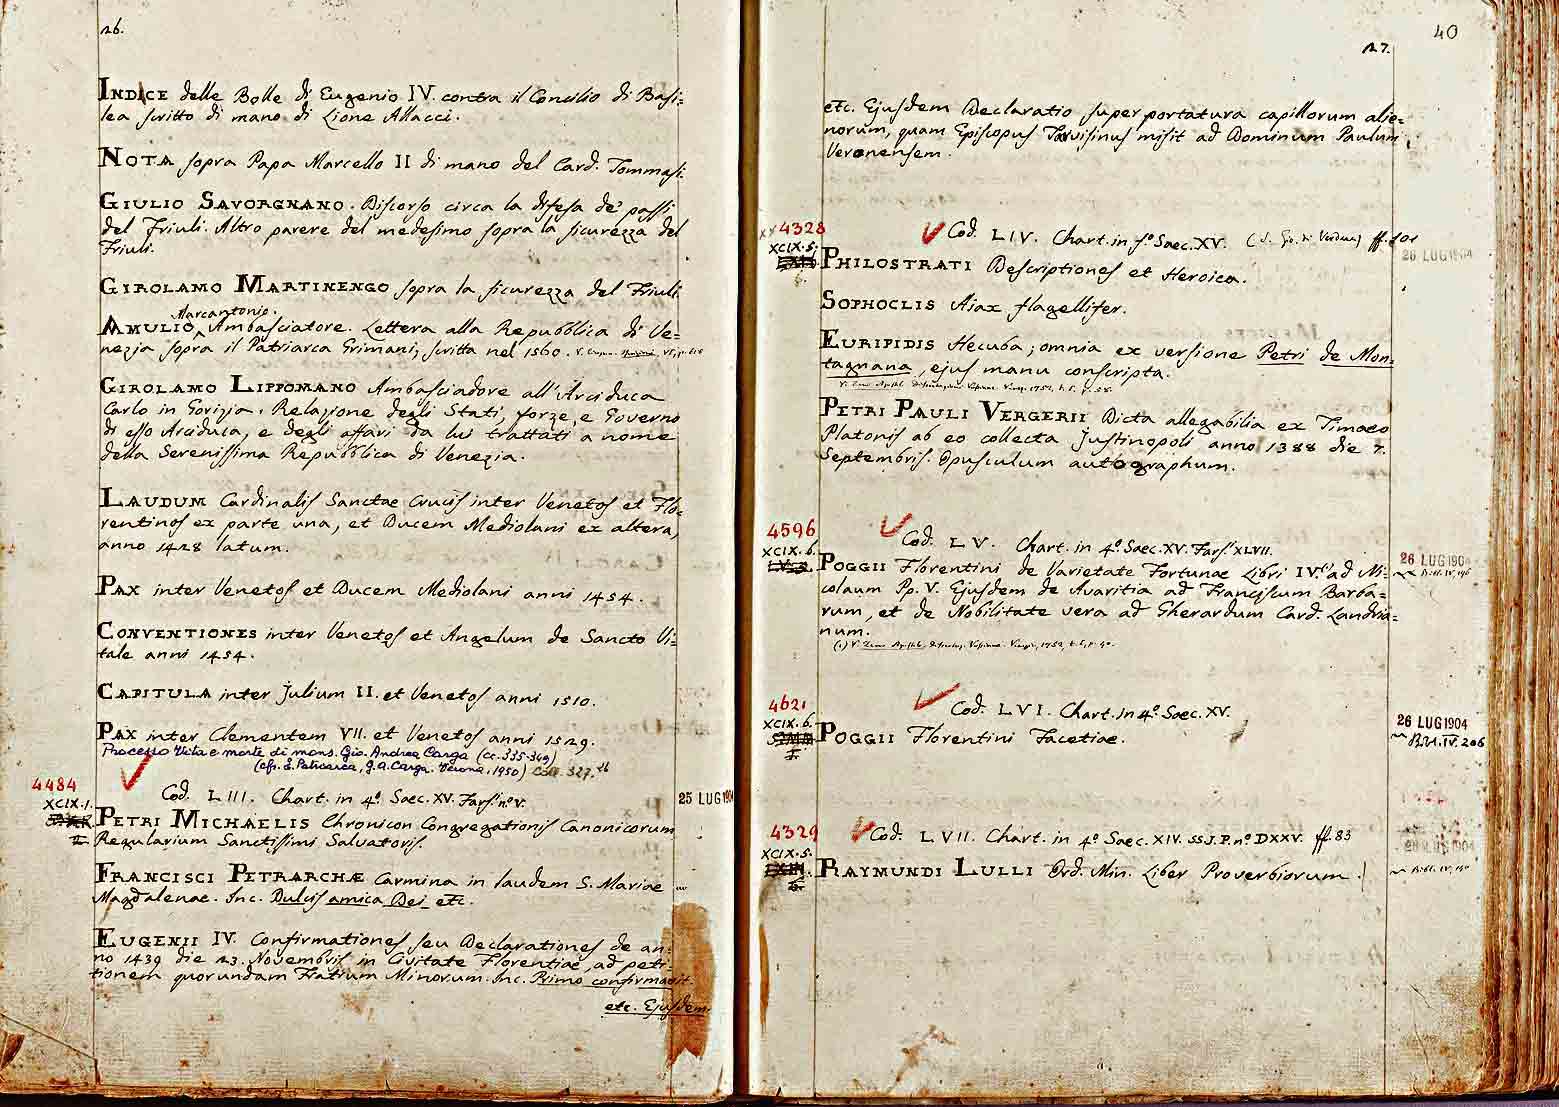 26.
INDICE delle Bolle di Eugenio IV. contra il Concilio di Basi=
lea scritto di mano di Lione Allacci.
NOTA sopra Papa Marcello II di mano del Card. Tommasi.
GIULIO SAVORGNANO. Discorso circa la difesa de' passi
del Friuli. Altro parere del medesimo sopra la sicurezza del
Friuli.
GIROLAMO MARTINENGO sopra la sicurezza del Friuli.
Marcantonio.
AMULIO ‸ Ambasciatore. Lettera alla Repubblica di Ve=
nezia sopra il Patriarca Grimani, scritta nel 1560.
GIROLAMO LIPPOMANO Ambasciadore all'Arciduca
Carlo in Gorizia. Relazione degli Stati, forze, e Governo
di esso Arciduca, e degli affari da lui trattati a nome
della Serenissima Repubblica di Venezia.
LAUDUM Cardinalis Sanctae Crucis inter Venetos et Flo=
rentinos ex parte una, et Ducem Mediolani ex altera,
anno 1428 latum.
PAX inter Venetos et Ducem Mediolani anni 1454.
CONVENTIONES inter Venetos et Angelum de Sancto Vi=
tale anni 1454.
CAPITULA inter Julium II. et Venetos anni 1510.
PAX inter Clementem VII. et Venetos anni 1529.
Processo Vita e morte di mons. Gio. Andrea Carga (cc. 335-349)
(cfr. L. Petricarca, G. A. Carga. Verona, 1950)
4484
Cod. LIII. Chart. in 4º. Saec. XV. Fars. nº. V.
25 LUG 1904
XCIX. 1.
PETRI MICHAELIS Chronicon Congregationis Canonicorum
Regularium Sanctissimi Salvatoris.
FRANCISCI PETRARCHÆ Carmina in laudem S. Mariae
Magdalenae. Inc. Dulcis amica Dei etc.
EUGENII IV. Confirmationes seu Declarationes de an=
no 1439 die 23. Novembris in Civitate Florentiae, ad peti=
tionem quorundam Fratium Minorum. Inc. Primo confirmavit
etc. Ejusdem
40
27.
etc. Ejusdem Declaratio super portatura capillorum alie=
norum, quam Episcopus Tarvisinus misit ad Dominum Paulum
Veronensem.
4328
Cod. LIV. Chart. in fº. Saec. XV.
26 LUG 1904
XCIX. 5.
PHILOSTRATI Descriptiones et Heroica.
SOPHOCLIS Ajax flagellifer.
EURIPIDIS Hecuba; omnia ex versione Petri de Mon=
tagnana, ejus manu conscripta.
PETRI PAULI VERGERII Dicta allegabilia ex Timaeo
Platonis ab eo collecta Justinopoli anno 1388 die 7.
Septembris. Opusculum autographum.
4596
Cod. LV. Chart. in 4º. Saec. XV. Fars. XLVII.
26 LUG 1904
XCIX. 6.
POGGII Florentini de Varietate Fortunae Libri IV. (1) ad Ni=
colaum Pp. V. Ejusdem de Avaritia ad Franciscum Barba=
rum, et de Nobilitate vera ad Gherardum Card. Landria=
num.
4621
Cod. LVI. Chart. in 4º. Saec. XV.
26 LUG 1904
Bibl. IV. 206
XCIX. 6.
POGGII Florentini Facetiae.
4329
Cod. LVII. Chart. in 4º. Saec. XIV. SS. J. P. nº DXXV. ff. 83
XCIX. 5.
RAYMUNDI LULLI Ord. Min. Liber Proverbiorum.